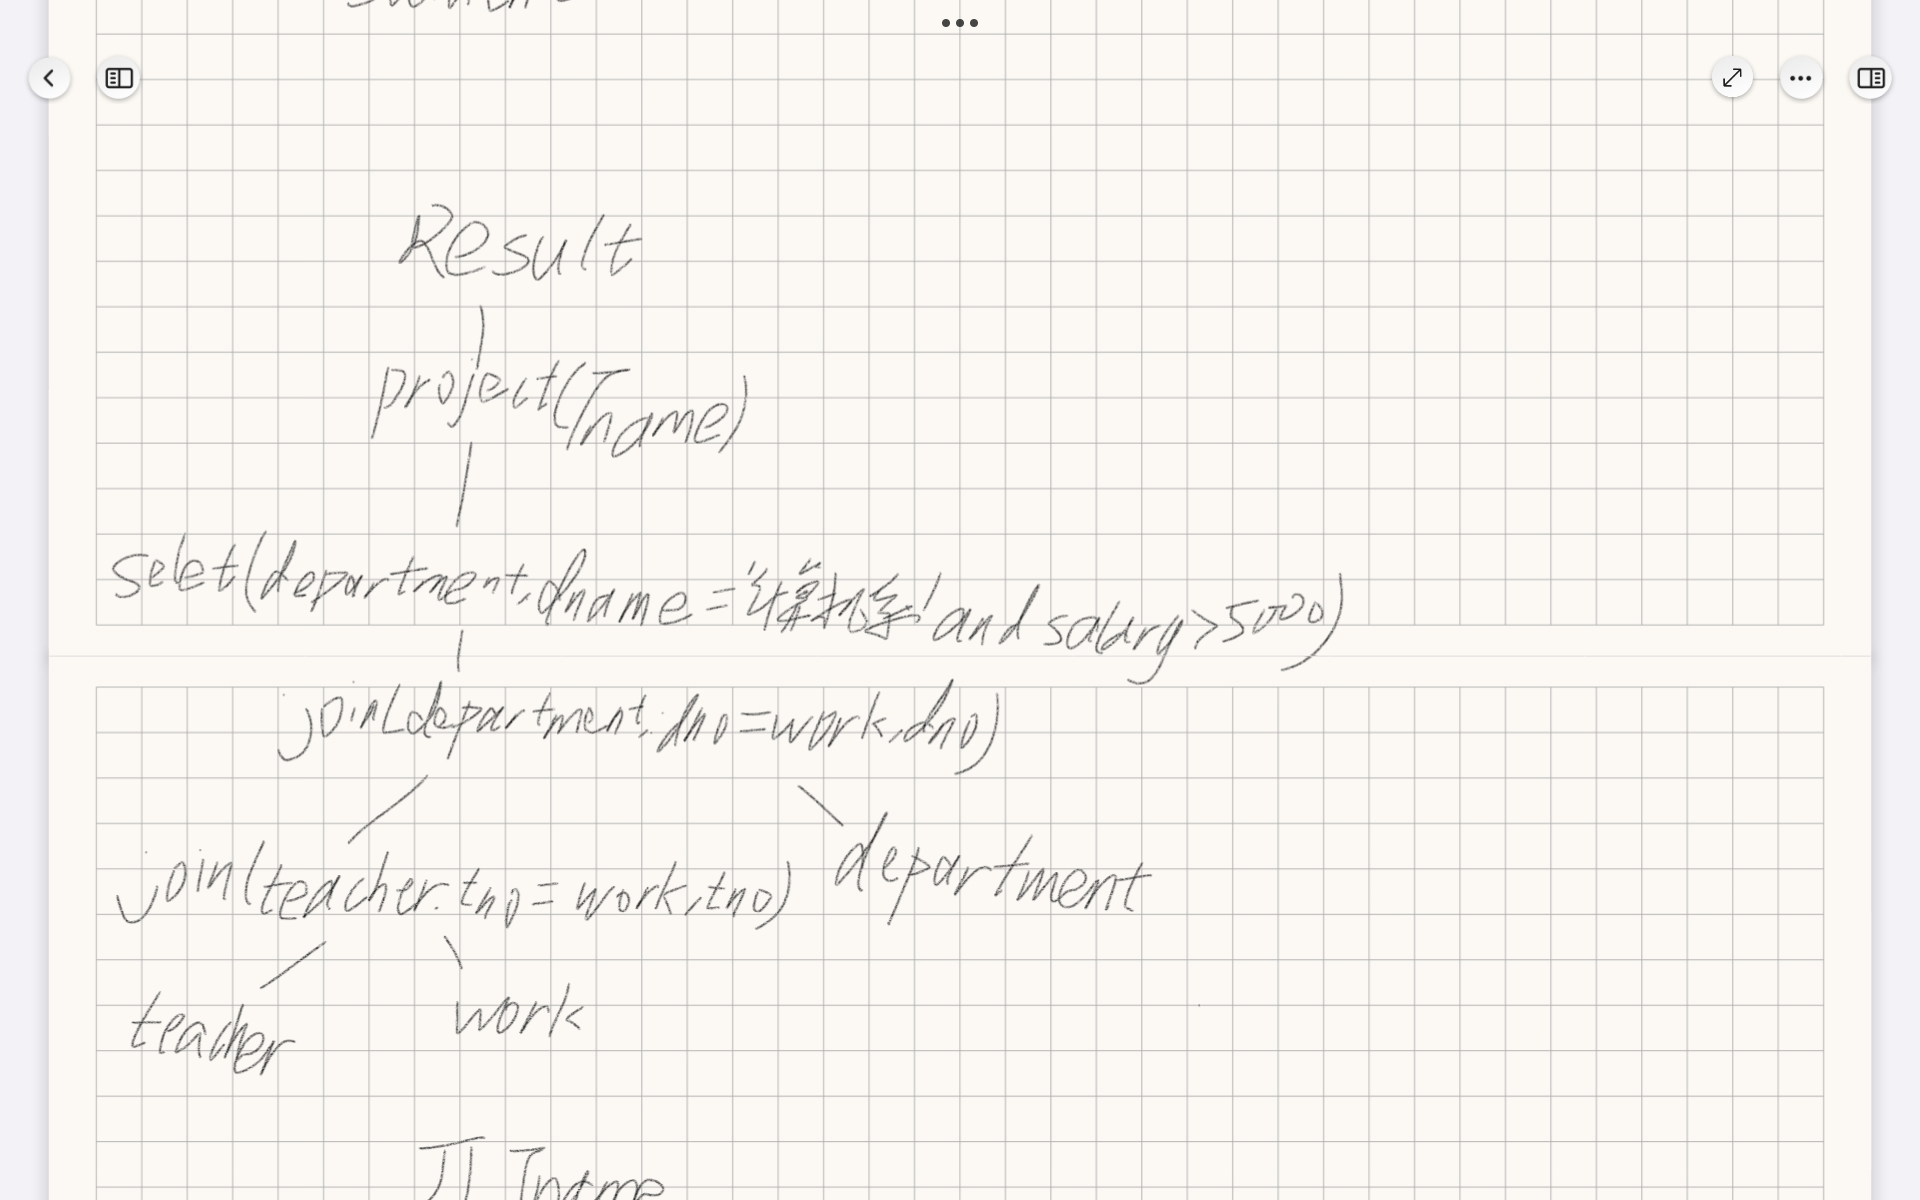 Result
project(Tname)
selet(department.dname='计算机系' and salary>5000)
join(department.dno=work.dno)
join(teacher.tno=work.tno)
department
teacher
work
π Tname